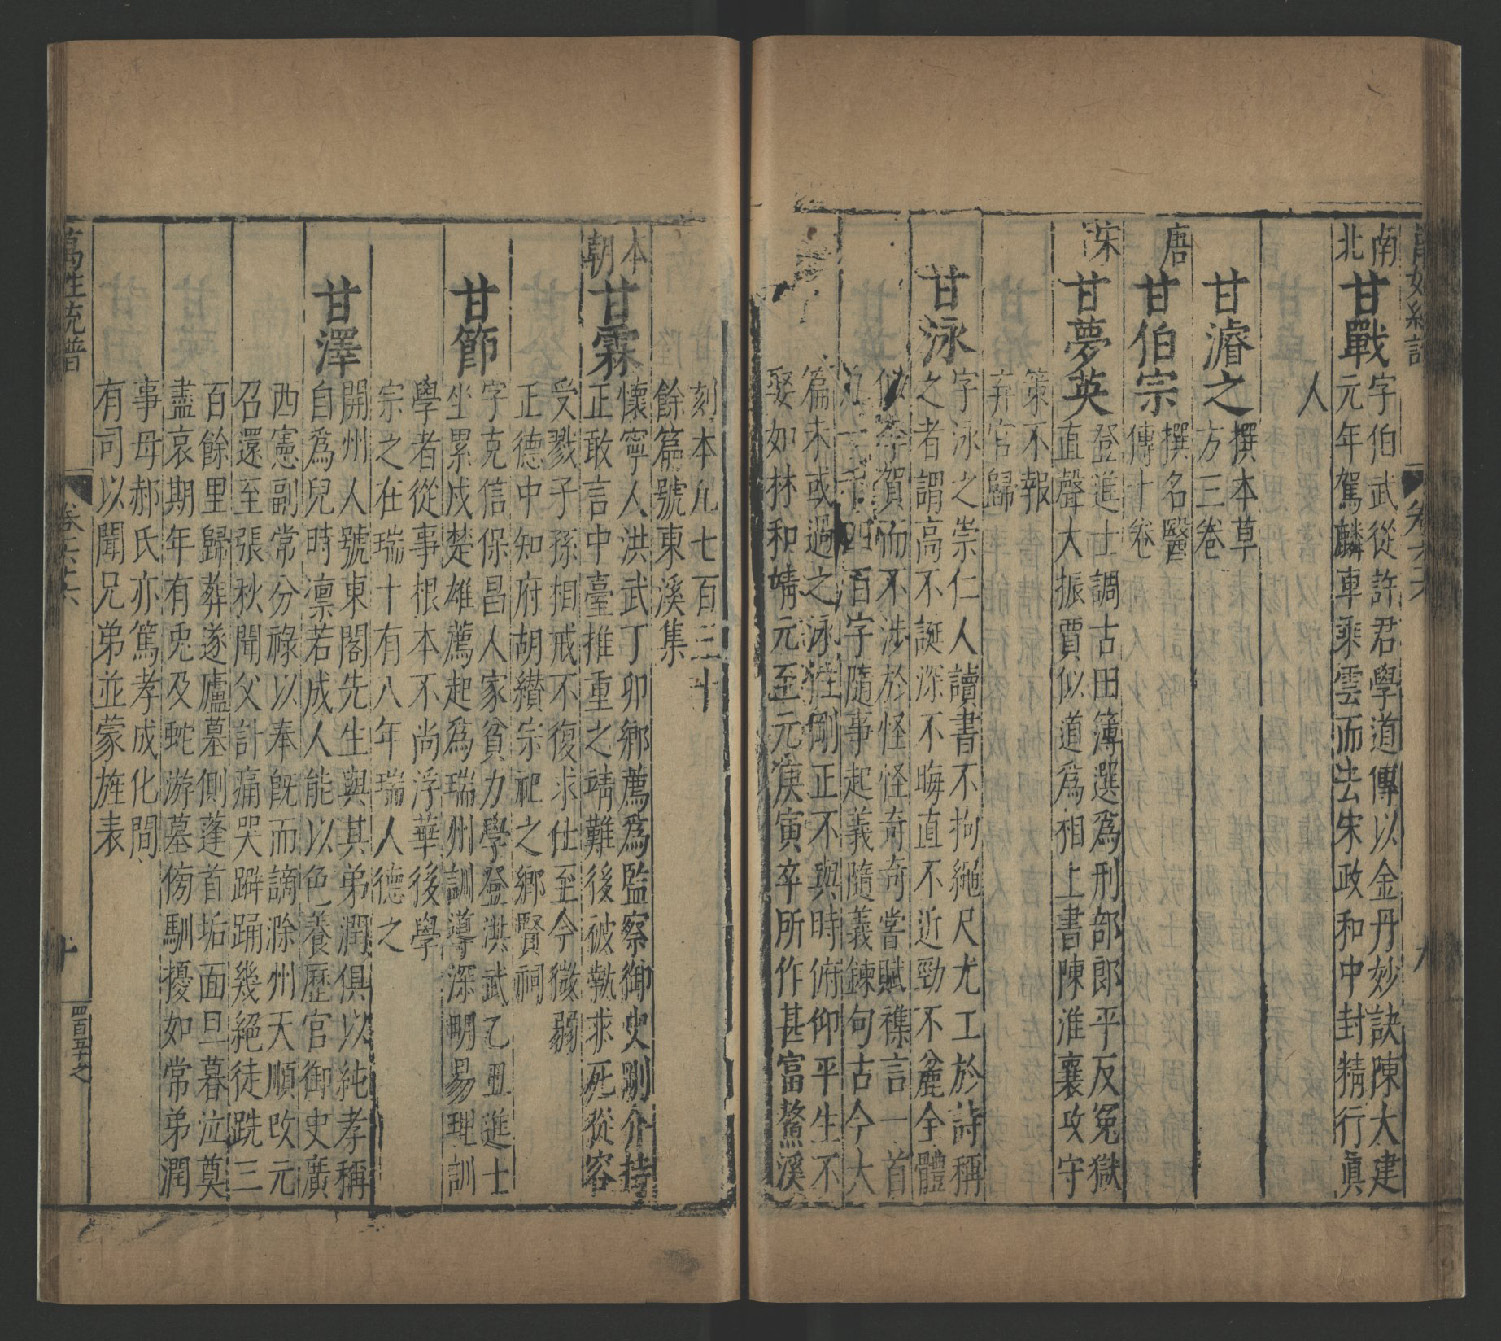 南北
甘戰
字伯武從許君學道傳以金丹妙訣陳太建
元年駕麟車乘雲而去宋政和中封精行眞
人
甘濬之
撰本草
方三卷
唐
甘伯宗
撰名醫
傳七卷
宋
甘夢英
登進士調古田簿選爲刑部郎平反冤獄
直聲大振賈似道爲相上書陳淮襄攻守
策不報
弃官歸
甘泳
字泳之崇仁人讀書不拘繩尺尤工於詩稱
之者謂高不誕深不晦直不近勁不麄全體
似李賀而不涉於怪怪奇奇嘗賦襍言一首
九二千四百字隨事起義隨義鍊句古今大
篇未或過之泳性剛正不與時俯仰平生不
娶如林和靖元至元庚寅卒所作甚富鰲溪
刻本凡七百三十
餘篇號東溪集
本朝
甘霖
懷寧人洪武丁卯鄉薦爲監察御史剛介持
正敢言中臺推重之靖難後被執求死從容
受戮子孫相戒不復求仕至今微弱
正德中知府胡纉宗祀之鄉賢祠
甘節
字克信保昌人家貧力學登洪武乙丑進士
坐累戍楚雄薦起爲瑞州訓導深明易理訓
學者從事根本不尚浮華後學
宗之在瑞十有八年瑞人德之
甘澤
開州人號東閣先生與其弟潤俱以純孝稱
自爲兒時凛若成人能以色養歷官御史廣
西憲副常分祿以奉旣而謫滁州天順攺元
召還至張秋聞父訃痛哭躃踊幾絕徒跣三
百餘里歸葬遂廬墓側蓬首垢面旦暮泣奠
盡哀期年有兎及蛇游墓傍馴擾如常弟潤
事母郝氏亦篤孝成化間
有司以聞兄弟並蒙旌表
萬姓統譜
卷六十六
十
四百五十七